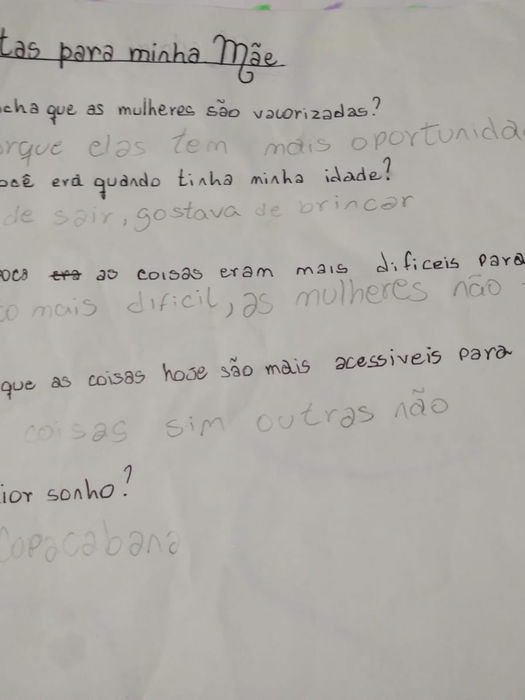 tas para minha Mãe
cha que as mulheres são valorizadas?
orque elas tem mais oportunida
ocê era quando tinha minha idade?
de sair, gostava de brincar
poca era as coisas eram mais dificeis para
to mais dificil, as mulheres não
que as coisas hoje são mais acessiveis para
coisas sim outras não
ior sonho?
Copacabana